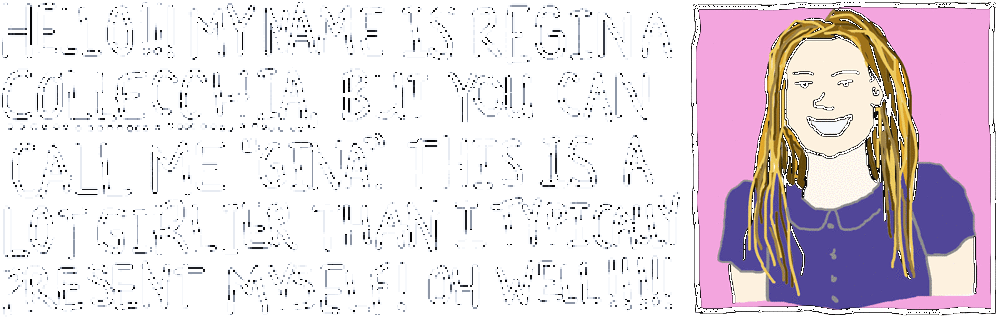 HELLO!! MY NAME IS REGINA
COLLECCHIA BUT YOU CAN
CALL ME "GINA". THIS IS A
LOT GIRLIER THAN I TYPICALLY
PRESENT MYSELF! OH WELL!!!!